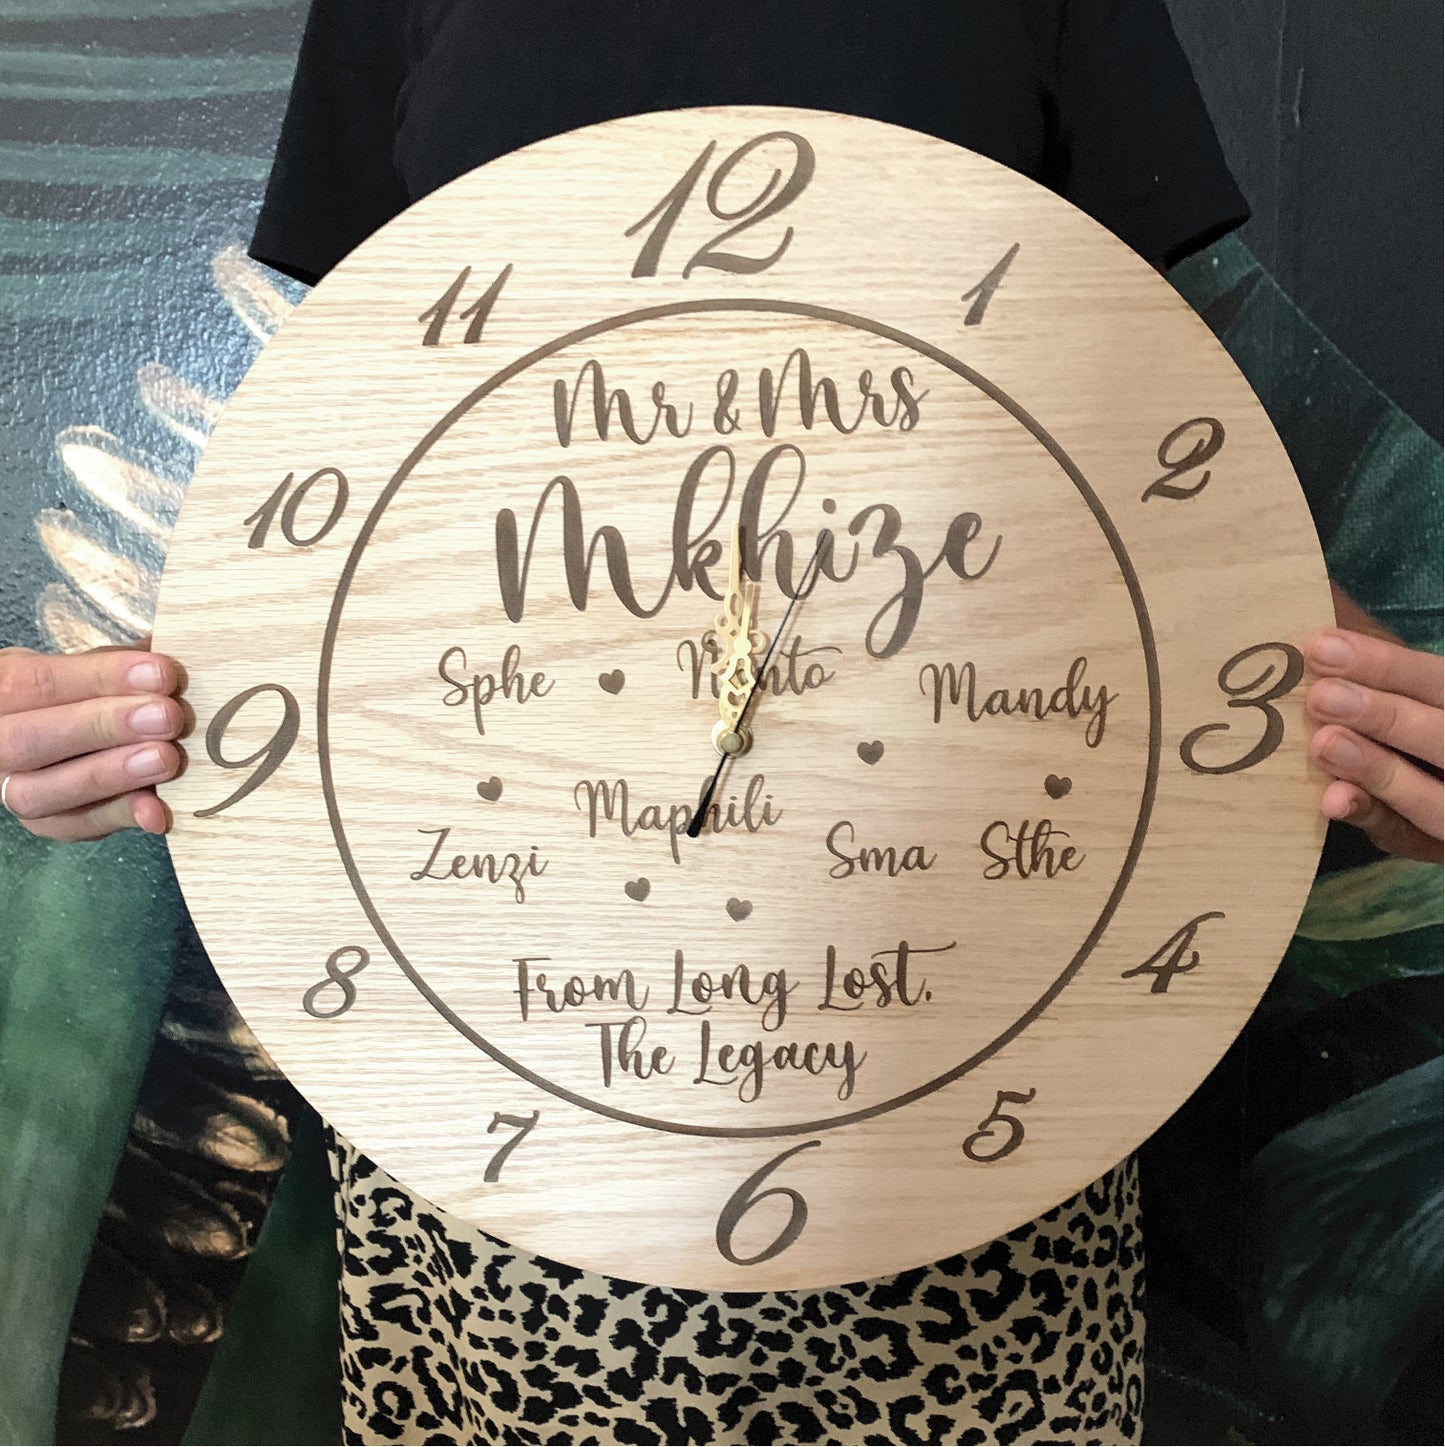 12
11 1
Mr & Mrs
10 2
Mkhize
Sphe Mandy
9 3
Maphili
Zenzi Sma Sthe
8 4
From Long Lost.
The Legacy
7 5
6